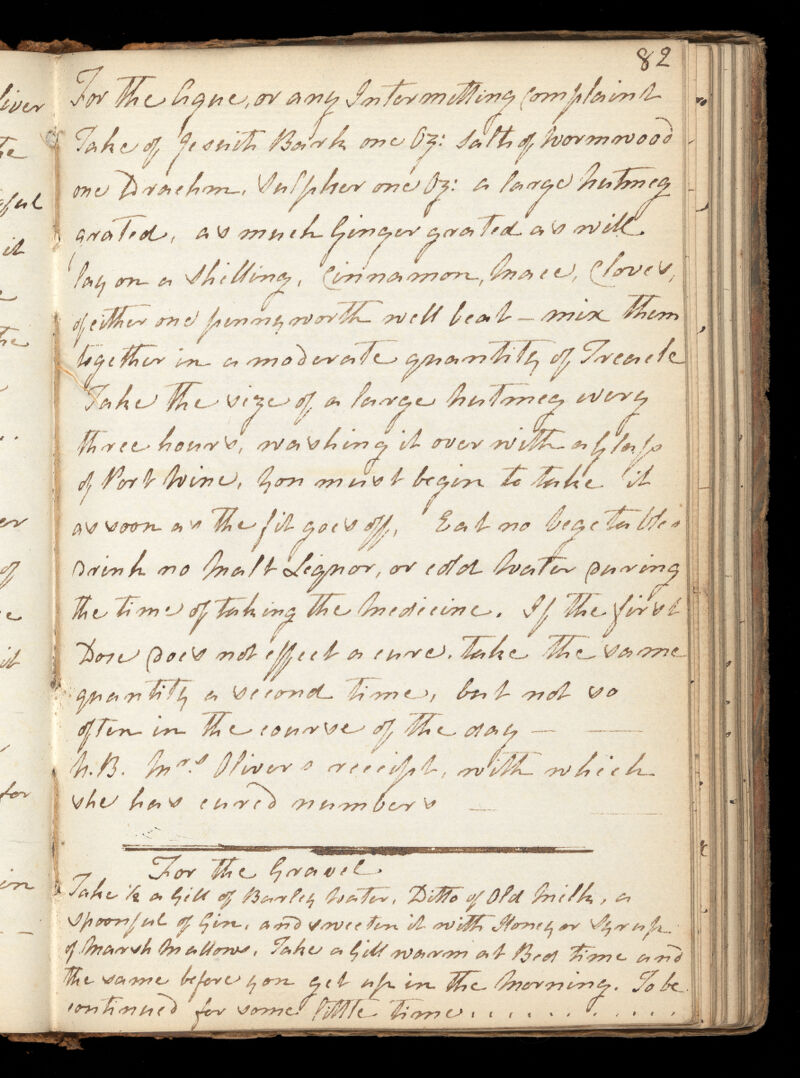 82
For the Ague, or any Intermitting Complaint
Take of Jesuits Bark one Oz: Salt of Wormwood
one Drachm, Sulpher one Oz: a large Nutmeg
grated, as much Ginger grated as will
lay on a Shilling, Cinnamon, Mace, Cloves,
of either one pennyworth well beat – mix them
together in a moderate quantity of Treacle
Take the size of a large Nutmeg every
three hours, washing it over with a Glass
of Port Wine, you must begin to take it
as soon as the fit goes off, Eat no Vegetables
Drink no Malt Liquor, or cold Water During
the time of taking the Medicine. If the first
Dose Does not effect a cure. take the same
quantity a second time, but not so
often in the course of the day –
N.B. Mrs Olivers receipt, with which
she has cured numbers –
For the Gravel
Take ½ a Gill of Barley Water, Ditto of Old Milk, a
spoonful of Gin, and sweeten it with Honey or Syrup
of Marsh Mallows, Take a Gill warm at Bed time and
the same before you get up in the Morning. To be
continued for some little time............
liver
it
for
in